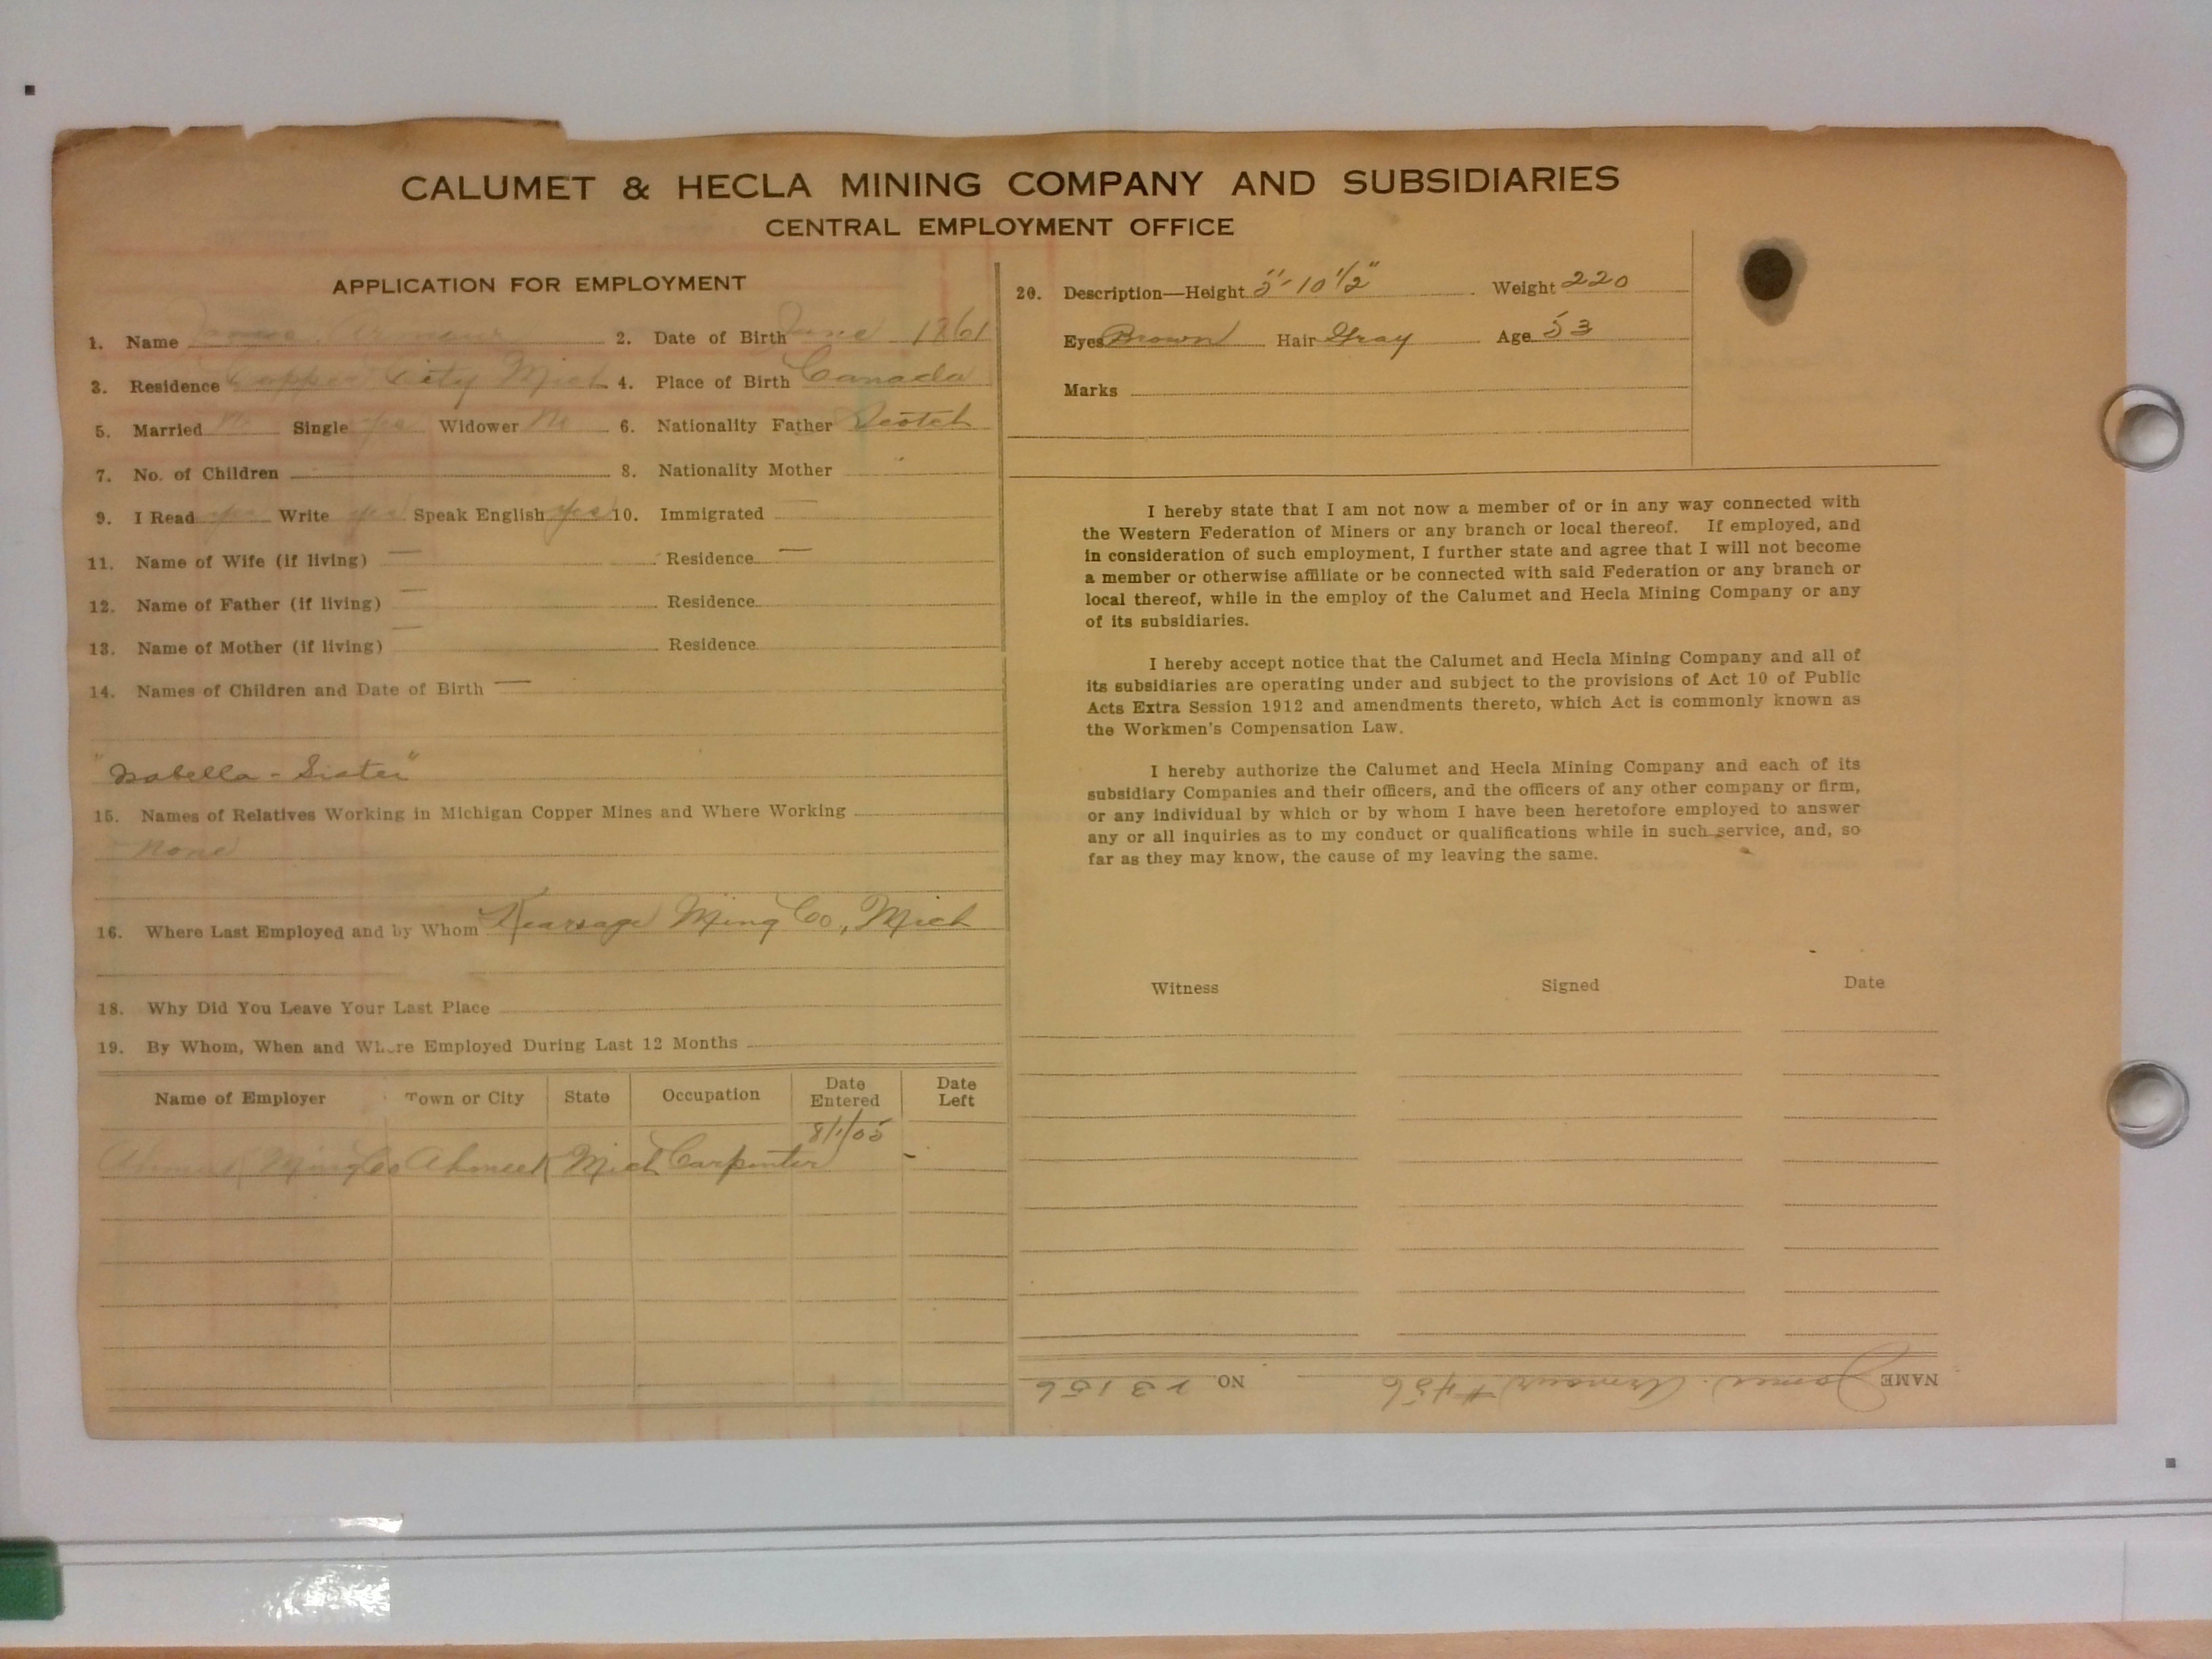 CALUMET & HECLA MINING COMPANY AND SUBSIDIARIES
CENTRAL EMPLOYMENT OFFICE
APPLICATION FOR EMPLOYMENT
1. Name James Armour 2. Date of Birth June 1861
3. Residence Copper City Mich 4. Place of Birth Canada
5. Married No Single yes Widower No 6. Nationality Father Scotch
7. No. of Children 8. Nationality Mother "
9. I Read yes Write yes Speak English yes 10. Immigrated —
11. Name of Wife (if living) — Residence —
12. Name of Father (if living) — Residence
13. Name of Mother (if living) — Residence
14. Names of Children and Date of Birth —
"Isabella - Sister"
15. Names of Relatives Working in Michigan Copper Mines and Where Working
None
16. Where Last Employed and by Whom Kearsage Ming Co, Mich
18. Why Did You Leave Your Last Place
19. By Whom, When and Where Employed During Last 12 Months
Name of Employer Town or City State Occupation Date Entered Date Left
8/1/05
Ahmeek Ming Co Ahmeek Mich Carpenter -
20. Description—Height 5'-10 1/2" Weight 220
Eyes Brown Hair Gray Age 53
Marks
I hereby state that I am not now a member of or in any way connected with
the Western Federation of Miners or any branch or local thereof. If employed, and
in consideration of such employment, I further state and agree that I will not become
a member or otherwise affiliate or be connected with said Federation or any branch or
local thereof, while in the employ of the Calumet and Hecla Mining Company or any
of its subsidiaries.
I hereby accept notice that the Calumet and Hecla Mining Company and all of
its subsidiaries are operating under and subject to the provisions of Act 10 of Public
Acts Extra Session 1912 and amendments thereto, which Act is commonly known as
the Workmen's Compensation Law.
I hereby authorize the Calumet and Hecla Mining Company and each of its
subsidiary Companies and their officers, and the officers of any other company or firm,
or any individual by which or by whom I have been heretofore employed to answer
any or all inquiries as to my conduct or qualifications while in such service, and, so
far as they may know, the cause of my leaving the same.
Witness Signed Date
NAME James Armour #456 NO. 23156